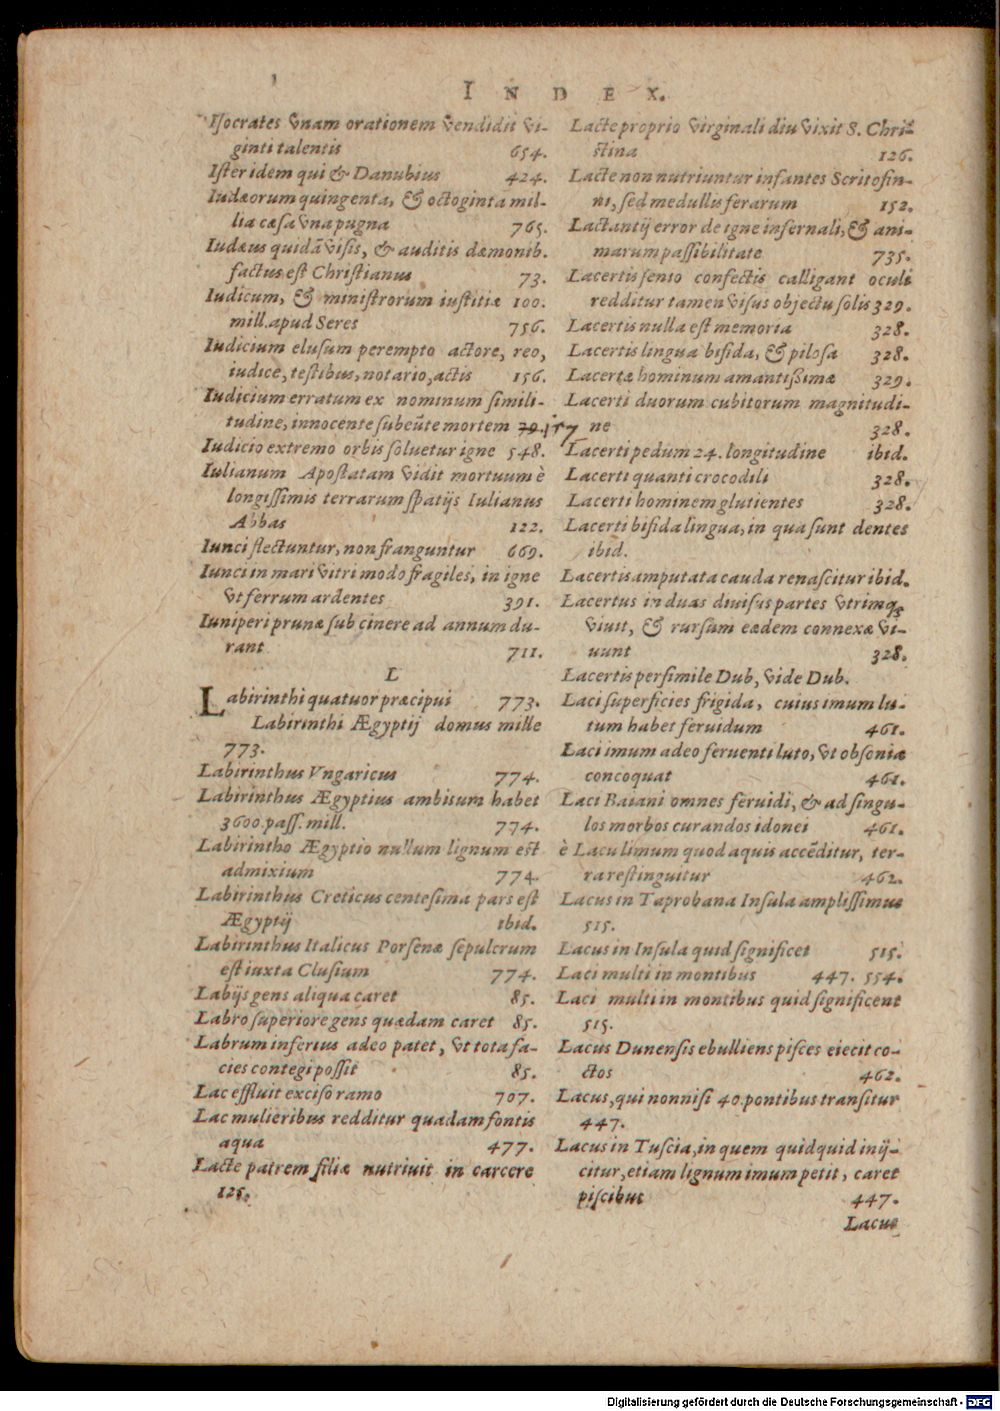 INDEX.
Isocrates vnam orationem vendidit vi-
ginti talentis 654.
Ister idem qui & Danubius 424.
Iudæorum quingenta, & octoginta mil-
lia cæsa vna pugna 765.
Iudæus quidã visis, & auditis dæmonib.
factus est Christianus 73.
Iudicum, & ministrorum iustitiæ 100.
mill. apud Seres 756.
Iudicium elusum perempto actore, reo,
iudice, testibus, notario, actis 156.
Iudicium erratum ex nominum simili-
tudine, innocente subeũte mortem 79. 157
Iudicio extremo orbis soluetur igne 548.
Iulianum Apostatam vidit mortuum è
longissimis terrarum spatijs Iulianus
Abbas 122.
Iunci flectuntur, non franguntur 669.
Iunci in mari vitri modo fragiles, in igne
vt ferrum ardentes 391.
Iuniperi prunæ sub cinere ad annum du-
rant 711.
L
Labirinthi quatuor præcipui 773.
Labirinthi Ægyptij domus mille
773.
Labirinthus Vngaricus 774.
Labirinthus Ægyptius ambitum habet
3600. pass. mill. 774.
Labirintho Ægyptio nullum lignum est
admixtum 774.
Labirinthus Creticus centesima pars est
Ægyptij ibid.
Labirinthus Italicus Porsenæ sepulcrum
est iuxta Clusium 774.
Labijs gens aliqua caret 85.
Labro superiore gens quædam caret 85.
Labrum inferius adeo patet, vt tota fa-
cies contegi possit 85.
Lac effluit exciso ramo 707.
Lac mulieribus redditur quadam fontis
aqua 477.
Lacte patrem filiæ nutriuit in carcere
125.
Lacte proprio virginali diu vixit S. Chri-
stina 126.
Lacte non nutriuntur infantes Scritofin-
ni, sed medullis ferarum 152.
Lactantij error de igne infernali, & ani-
marum passibilitate 735.
Lacertis senio confectis calligant oculi
redditur tamen visus objectu solis 329.
Lacertis nulla est memoria 328.
Lacertis lingua bifida, & pilosa 328.
Lacertæ hominum amantissimæ 329.
Lacerti duorum cubitorum magnitudi-
ne 328.
Lacerti pedum 24. longitudine ibid.
Lacerti quanti crocodili 328.
Lacerti hominem glutientes 328.
Lacerti bifida lingua, in qua sunt dentes
ibid.
Lacertis amputata cauda renascitur ibid.
Lacertus in duas diuisus partes vtrimq;
viuit, & rursum eædem connexæ vi-
uunt 328.
Lacertis persimile Dub, vide Dub.
Laci superficies frigida, cuius imum lu-
tum habet feruidum 461.
Laci imum adeo feruenti luto, vt obsonia
concoquat 461.
Laci Baiani omnes feruidi, & ad singu-
los morbos curandos idonei 461.
è Lacu limum quod aquis accẽditur, ter-
ra restinguitur 462.
Lacus in Taprobana Insula amplissimus
515.
Lacus in Insula quid significet 515.
Laci multi in montibus 447. 554.
Laci multi in montibus quid significent
515.
Lacus Dunensis ebulliens pisces eiecit co-
ctos 462.
Lacus, qui nonnisi 40. pontibus transitur
447.
Lacus in Tuscia, in quem quidquid inij-
citur, etiam lignum imum petit, caret
piscibus 447.
Lacus
Digitalisierung gefördert durch die Deutsche Forschungsgemeinschaft - DFG